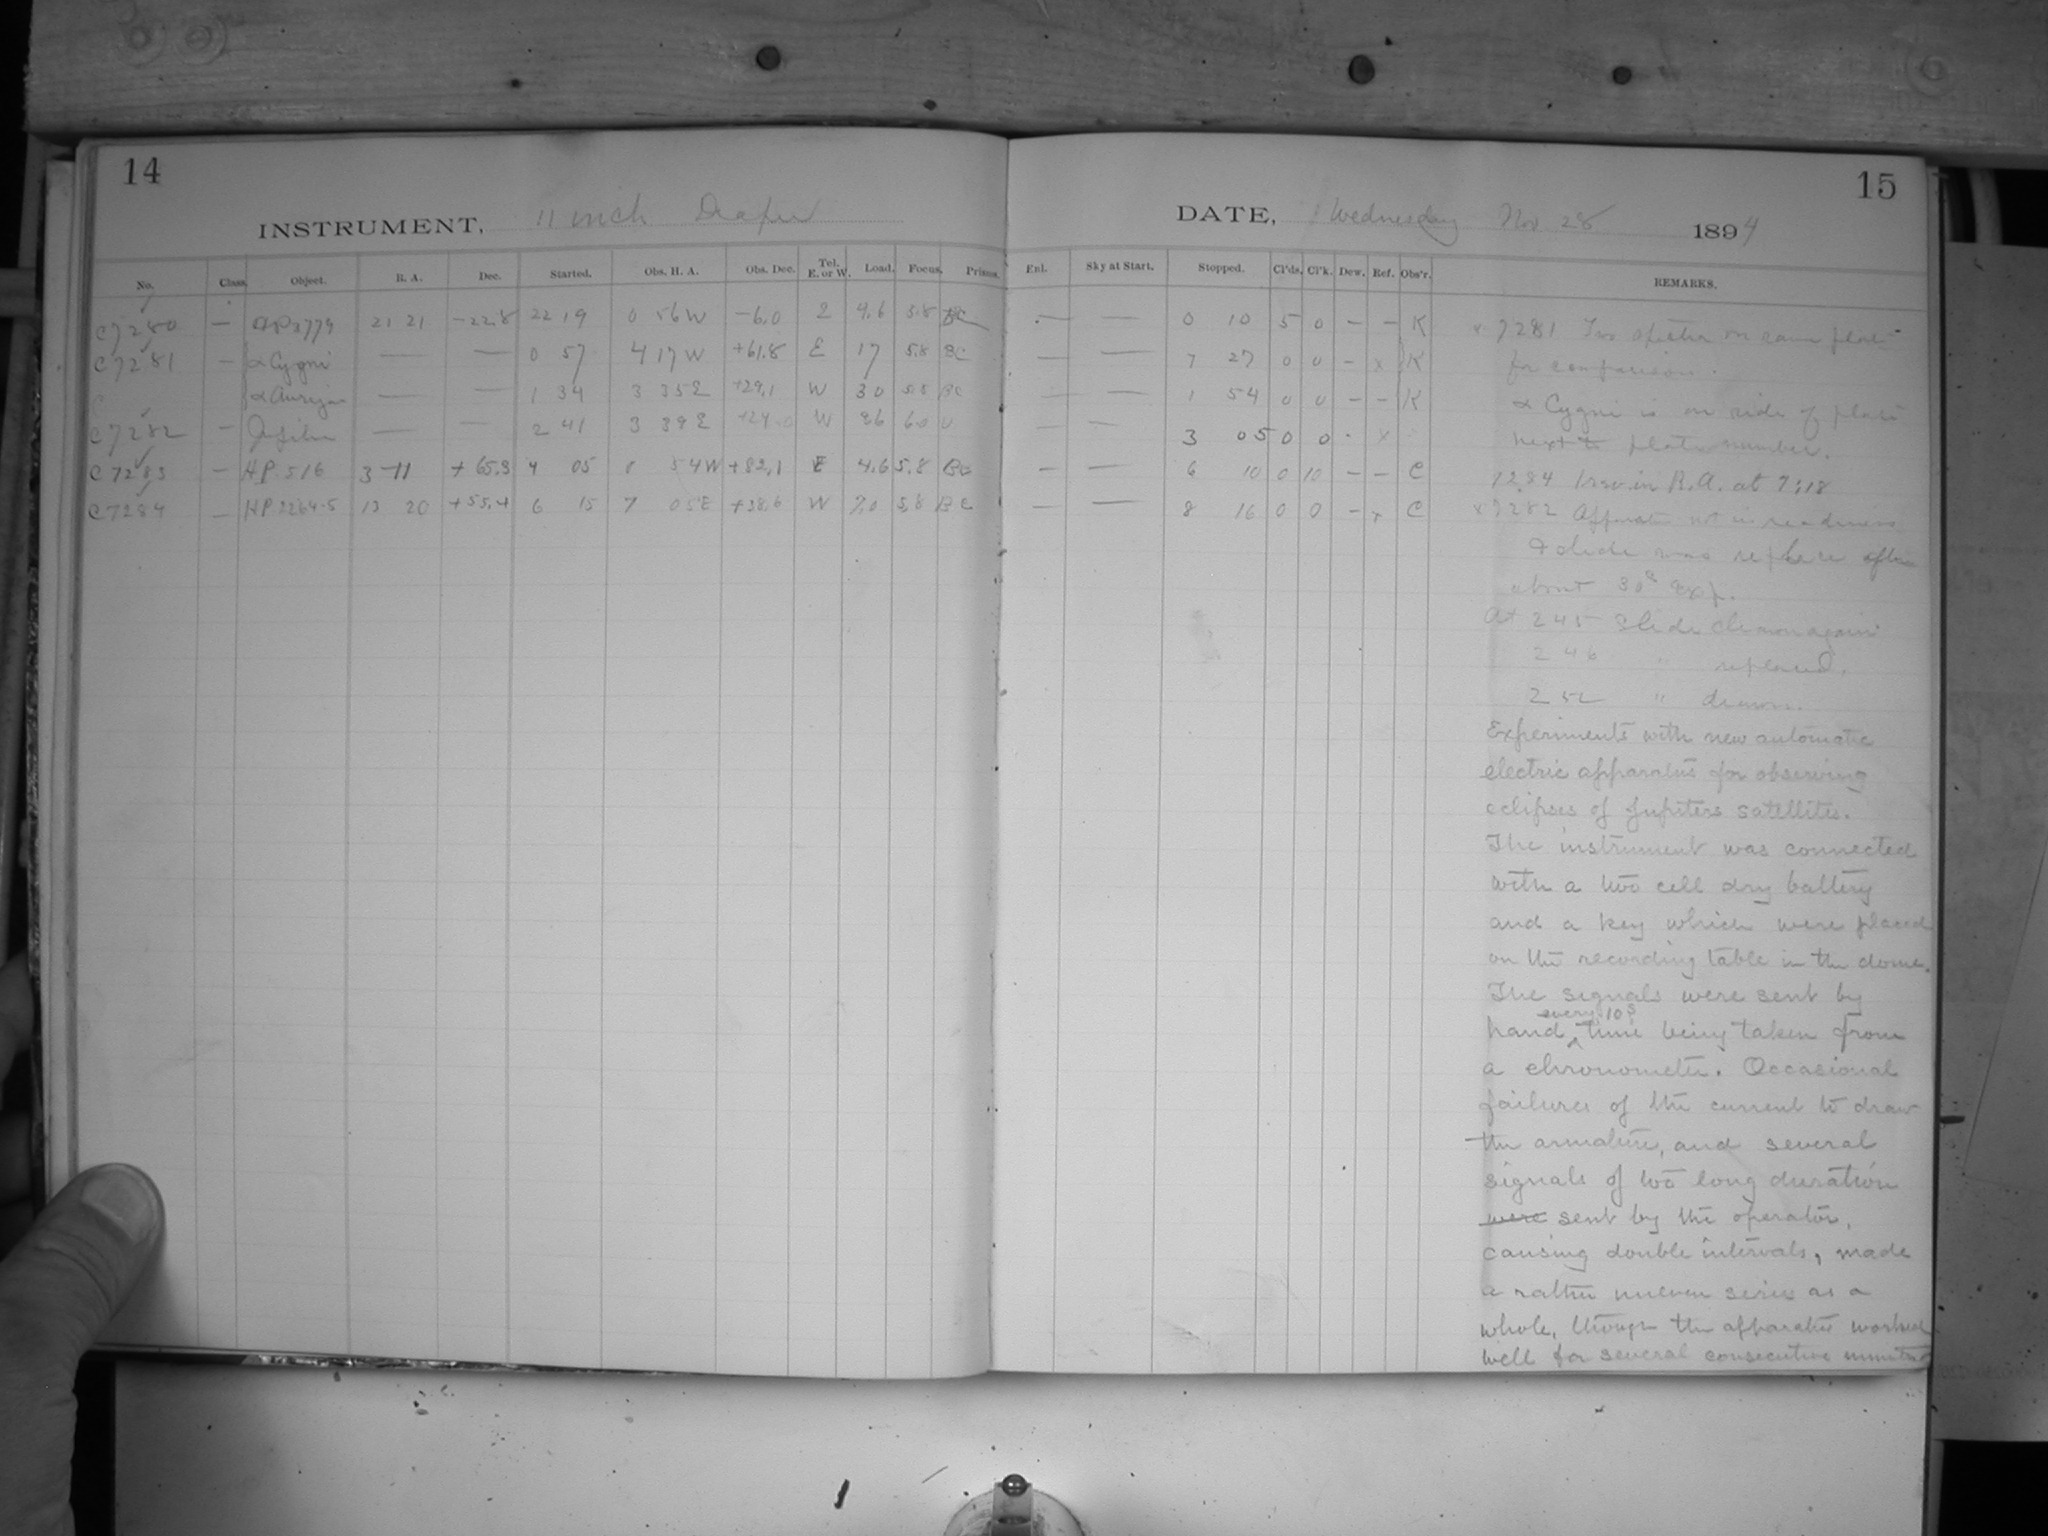 14
INSTRUMENT, 11 inch Draper
No. Class. Object. R. A. Dec. Started. Obs. H. A. Obs. Dec. Tel. E. or W. Load. Focus. Prisms.
C7280 — 21 21 -22.8 22 19 0 56 W -6.0 E 4.6 5.8 BC
C7281 — α Cygni — — 0 57 4 17 W +61.8 E 17 5.8 BC
α Aurigae — — 1 34 3 35 E +29.1 W 30 5.8 BC
C7282 — Jupiter — — 2 41 3 39 E W 36 6.0 0
C7283 — HP. 516 3 11 +65.3 4 05 0 54 W +82.1 E 4.6 5.8 BC
C7284 — HP. 2264-5 13 20 +55.4 6 15 7 05 E +38.6 W 7.0 5.8 BC
15
DATE, Wednesday Nov 28 1894
Enl. Sky at Start. Stopped. Cl'ds. Cl'k. Dew. Ref. Obs'r. REMARKS.
— — 0 10 5 0 — — K
— — 7 27 0 0 — x K
— — 1 54 0 0 — — K
— — 3 05 0 0 - x
— — 6 10 0 10 — — C
— — 8 16 0 0 — x C
x 7281 Two spectra on same plate
for comparison.
α Cygni is on side of plate
next to plate number.
7284 in R.A. at 7:18
x 7282 Apparat not in readiness
& slide was replace after
about 30s exp.
At 2 45 Slide drawn again
2 46 " replaced.
2 52 " drawn.
Experiments with new automatic
electric apparatus for observing
eclipses of Jupiters satellites.
The instrument was connected
with a two cell dry battery
and a key which were placed
on the recording table in the dome.
The signals were sent by
hand every 10s time being taken from
a chronometer. Occasional
failures of the current to draw
the armature, and several
signals of too long duration
were sent by the operator,
causing double intervals, made
a rather uneven series as a
whole, though the apparatus worked
well for several consecutive minutes